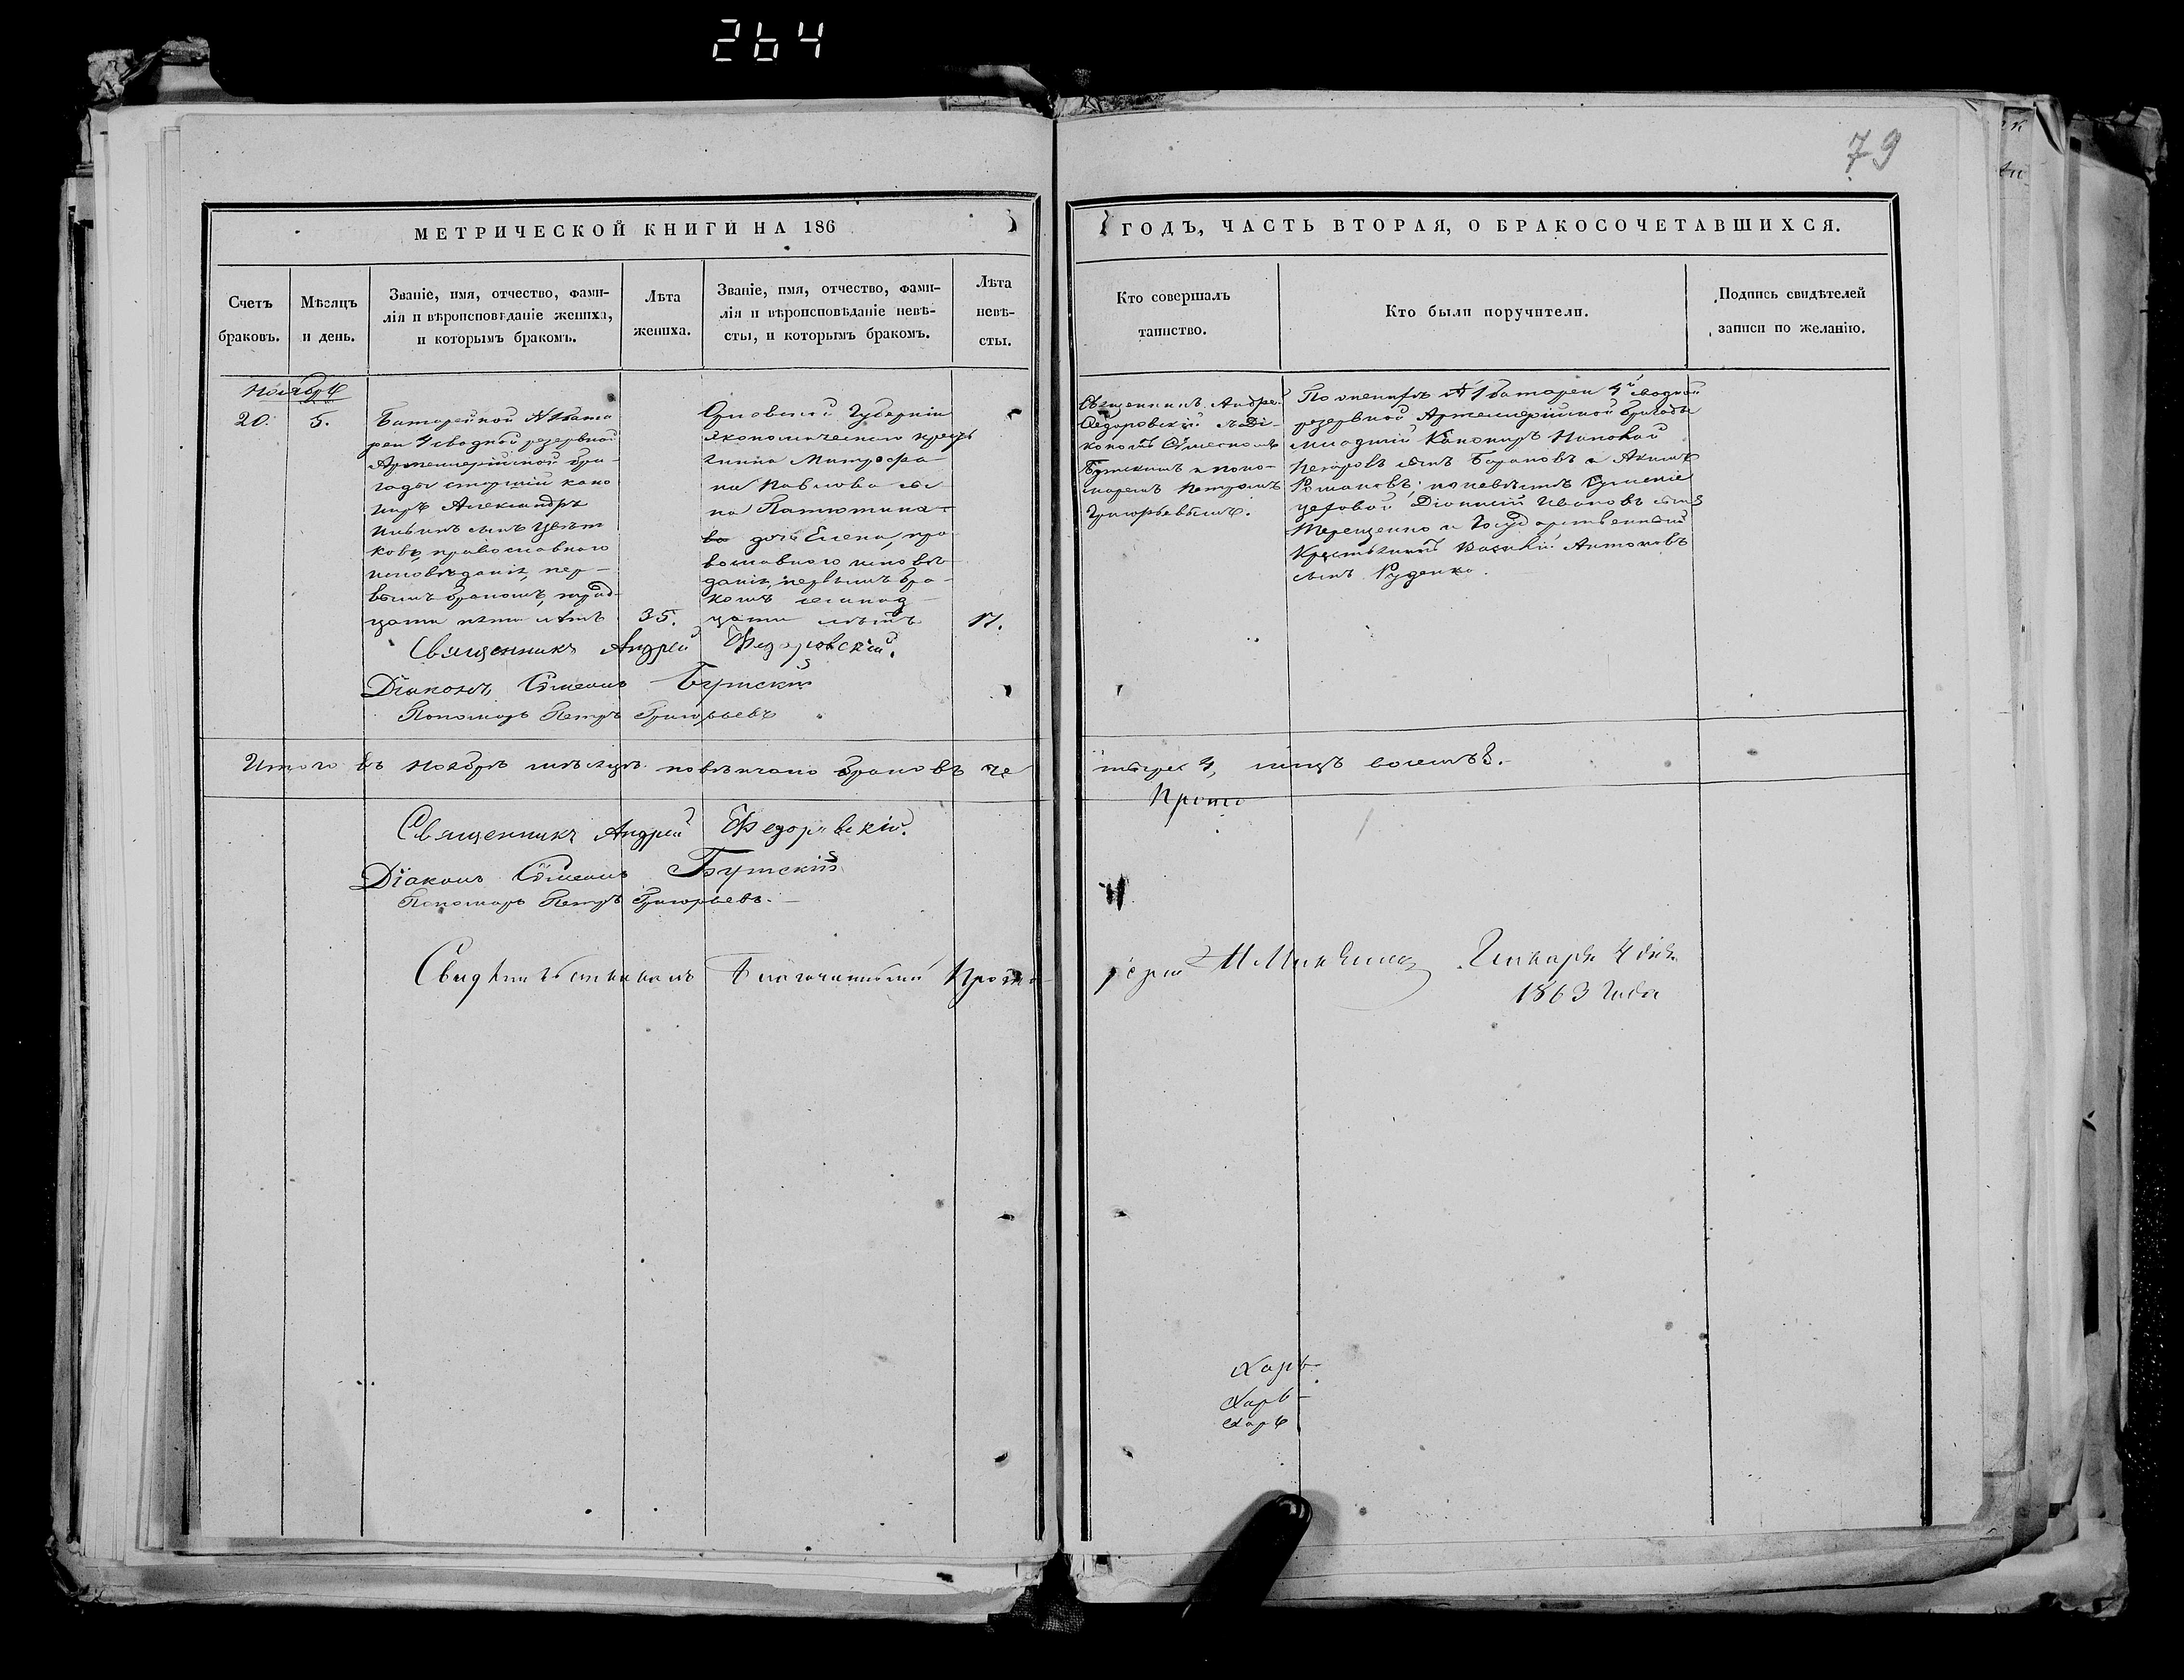 264
79
МЕТРИЧЕСКОЙ КНИГИ НА 186
ГОДЪ, ЧАСТЬ ВТОРАЯ, О БРАКОСОЧЕТАВШИХСЯ.
Счетъ
браковъ.
Мѣсяцъ
и день.
Званіе, имя, отчество, фами-
лія и вѣроисповѣданіе жениха,
и которымъ бракомъ.
Лѣта
жениха.
Званіе, имя, отчество, фами-
лія и вѣроисповѣданіе невѣ-
сты, и которымъ бракомъ.
Лѣта
невѣ-
сты.
Кто совершалъ
таинство.
Кто были поручители.
Подпись свидѣтелей
записи по желанію.
Ноябрь
20.
5.
Батарейной №1 бата
реи 4 сводной резервной
Артиллерійской бри-
гады старшій кано
ниръ Александръ
Ильинъ сынъ Цвѣт
ковъ, православнаго
исповѣданія, пер-
вымъ бракомъ, трид-
цати пяти лѣтъ
35.
Орловской Губерніи
экономическаго кресть
янина Митрофа-
на Павлова сы-
на
дочь Елена, пра
вославнаго исповѣ-
данія, первымъ бра-
комъ семнад-
цати лѣтъ
17.
Священникъ Андрей
Федоровскій съ Ді-
кономъ Симеономъ
Бутскимъ и поно-
маремъ Петромъ
Григорьевымъ.
По женихѣ №1 батареи 4й сводной
резервной Артиллерійской бригады
младшій Канониръ
сынъ Барановъ и Акимъ
Романовъ; по невѣстѣ
цеховой Діонисій Ивановъ сынъ
Терещенко и Государственный
Крестьянинъ Василій Антоновъ
сынъ Руденко.
Священникъ Андрей Федоровскій.
Діаконъ Симеонъ Бутскій
Пономарь Петръ Григорьевъ
Итого въ Ноябрѣ мѣсяцѣ повѣнчано браковъ че
тыре 4, лицъ восемь 8.
Прото
Священникъ Андрей Федоровскій.
Діаконъ Симеонъ Бутскій
Пономарь Петръ Григорьевъ.
Благочинный Прото-
іерей Января 4 дня
1863 Года
Харь-
Харь-
Харь